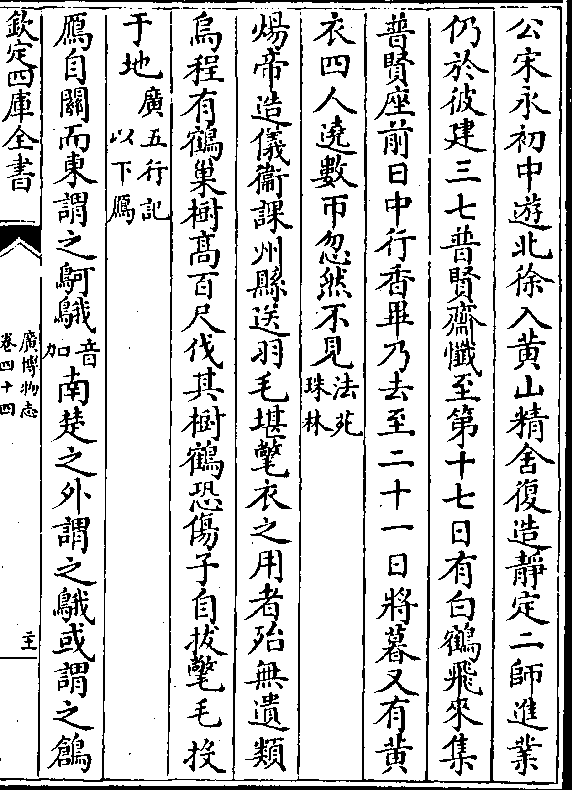 公宋永初中遊北徐入黄山精舍復造靜定二師進業
仍於彼建三七普賢齋懺至第十七日有白鶴飛來集
普賢座前日中行香畢乃去至二十一日將暮又有黄
衣四人遶數帀忽然不見法苑珠林
煬帝造儀衞課州縣送羽毛堪氅衣之用者殆無遺類
烏程有鶴巢樹髙百尺伐其樹鶴恐傷子自拔氅毛投
于地廣五行記以下鴈
鴈自關而東謂之鴚䳘音加南楚之外謂之䳘或謂之鶬
欽定四庫全書
廣博物志
卷四十四